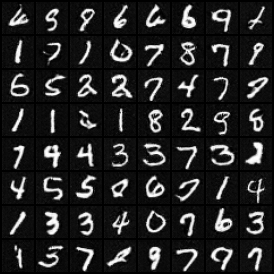 6 9 8 6 6 6 9
1 7 1 0 7 8 7 9
6 5 2 2 7 4 7 8
1 1 2 1 8 2 9 8
7 4 4 3 3 7 3 2
4 5 5 6 7 1 4
1 3 3 4 0 9 6 3
1 3 7 9 7 9 7